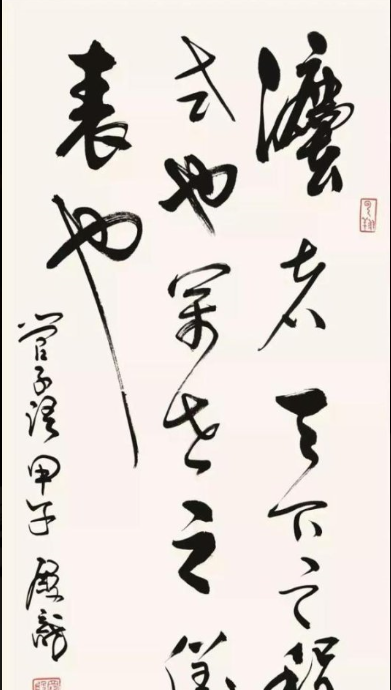 灋者天下之程
式也萬世之儀
表也
管子語 甲子